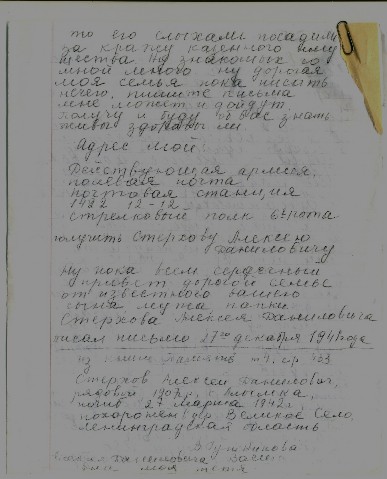 то его слыхамь посадили
за кражу казенного иму
щества Ну знакомых со
мной много ну дорогая
моя семья пока писать
нечего, пишите письма
мне может и дойдут
получу и буду о вас знать
живы здоровы ли
Адрес мой:
Действующая армия
полевая почта
почтовая станция
1422 12-12
стрелковый полк 6я рота
получить Стерхову Алексею
Даниловичу
Ну пока всем сердечный
привет дорогой семье
от известного вашего
сына мужа папки
Стерхова Алексея Даниловича
писал письмо 27го декабря 1941 года
из книги Память т 4, стр 433
Стерхов Алексей Данилович,
рядовой
погиб 27 марта 1942г.
похоронен дер. Великое Село,
Ленинградская область
Даниловича
моя тетя